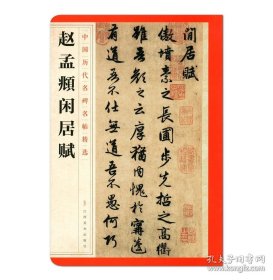 赵孟頫闲居赋
中国历代名碑名帖精选
江西美术出版社
閒居賦
傲墳素之長圃步先哲之高衢
雖吾顏之云厚猶內愧於甯蘧
有道吾不仕無道吾不愚何巧
孔夫子旧书网